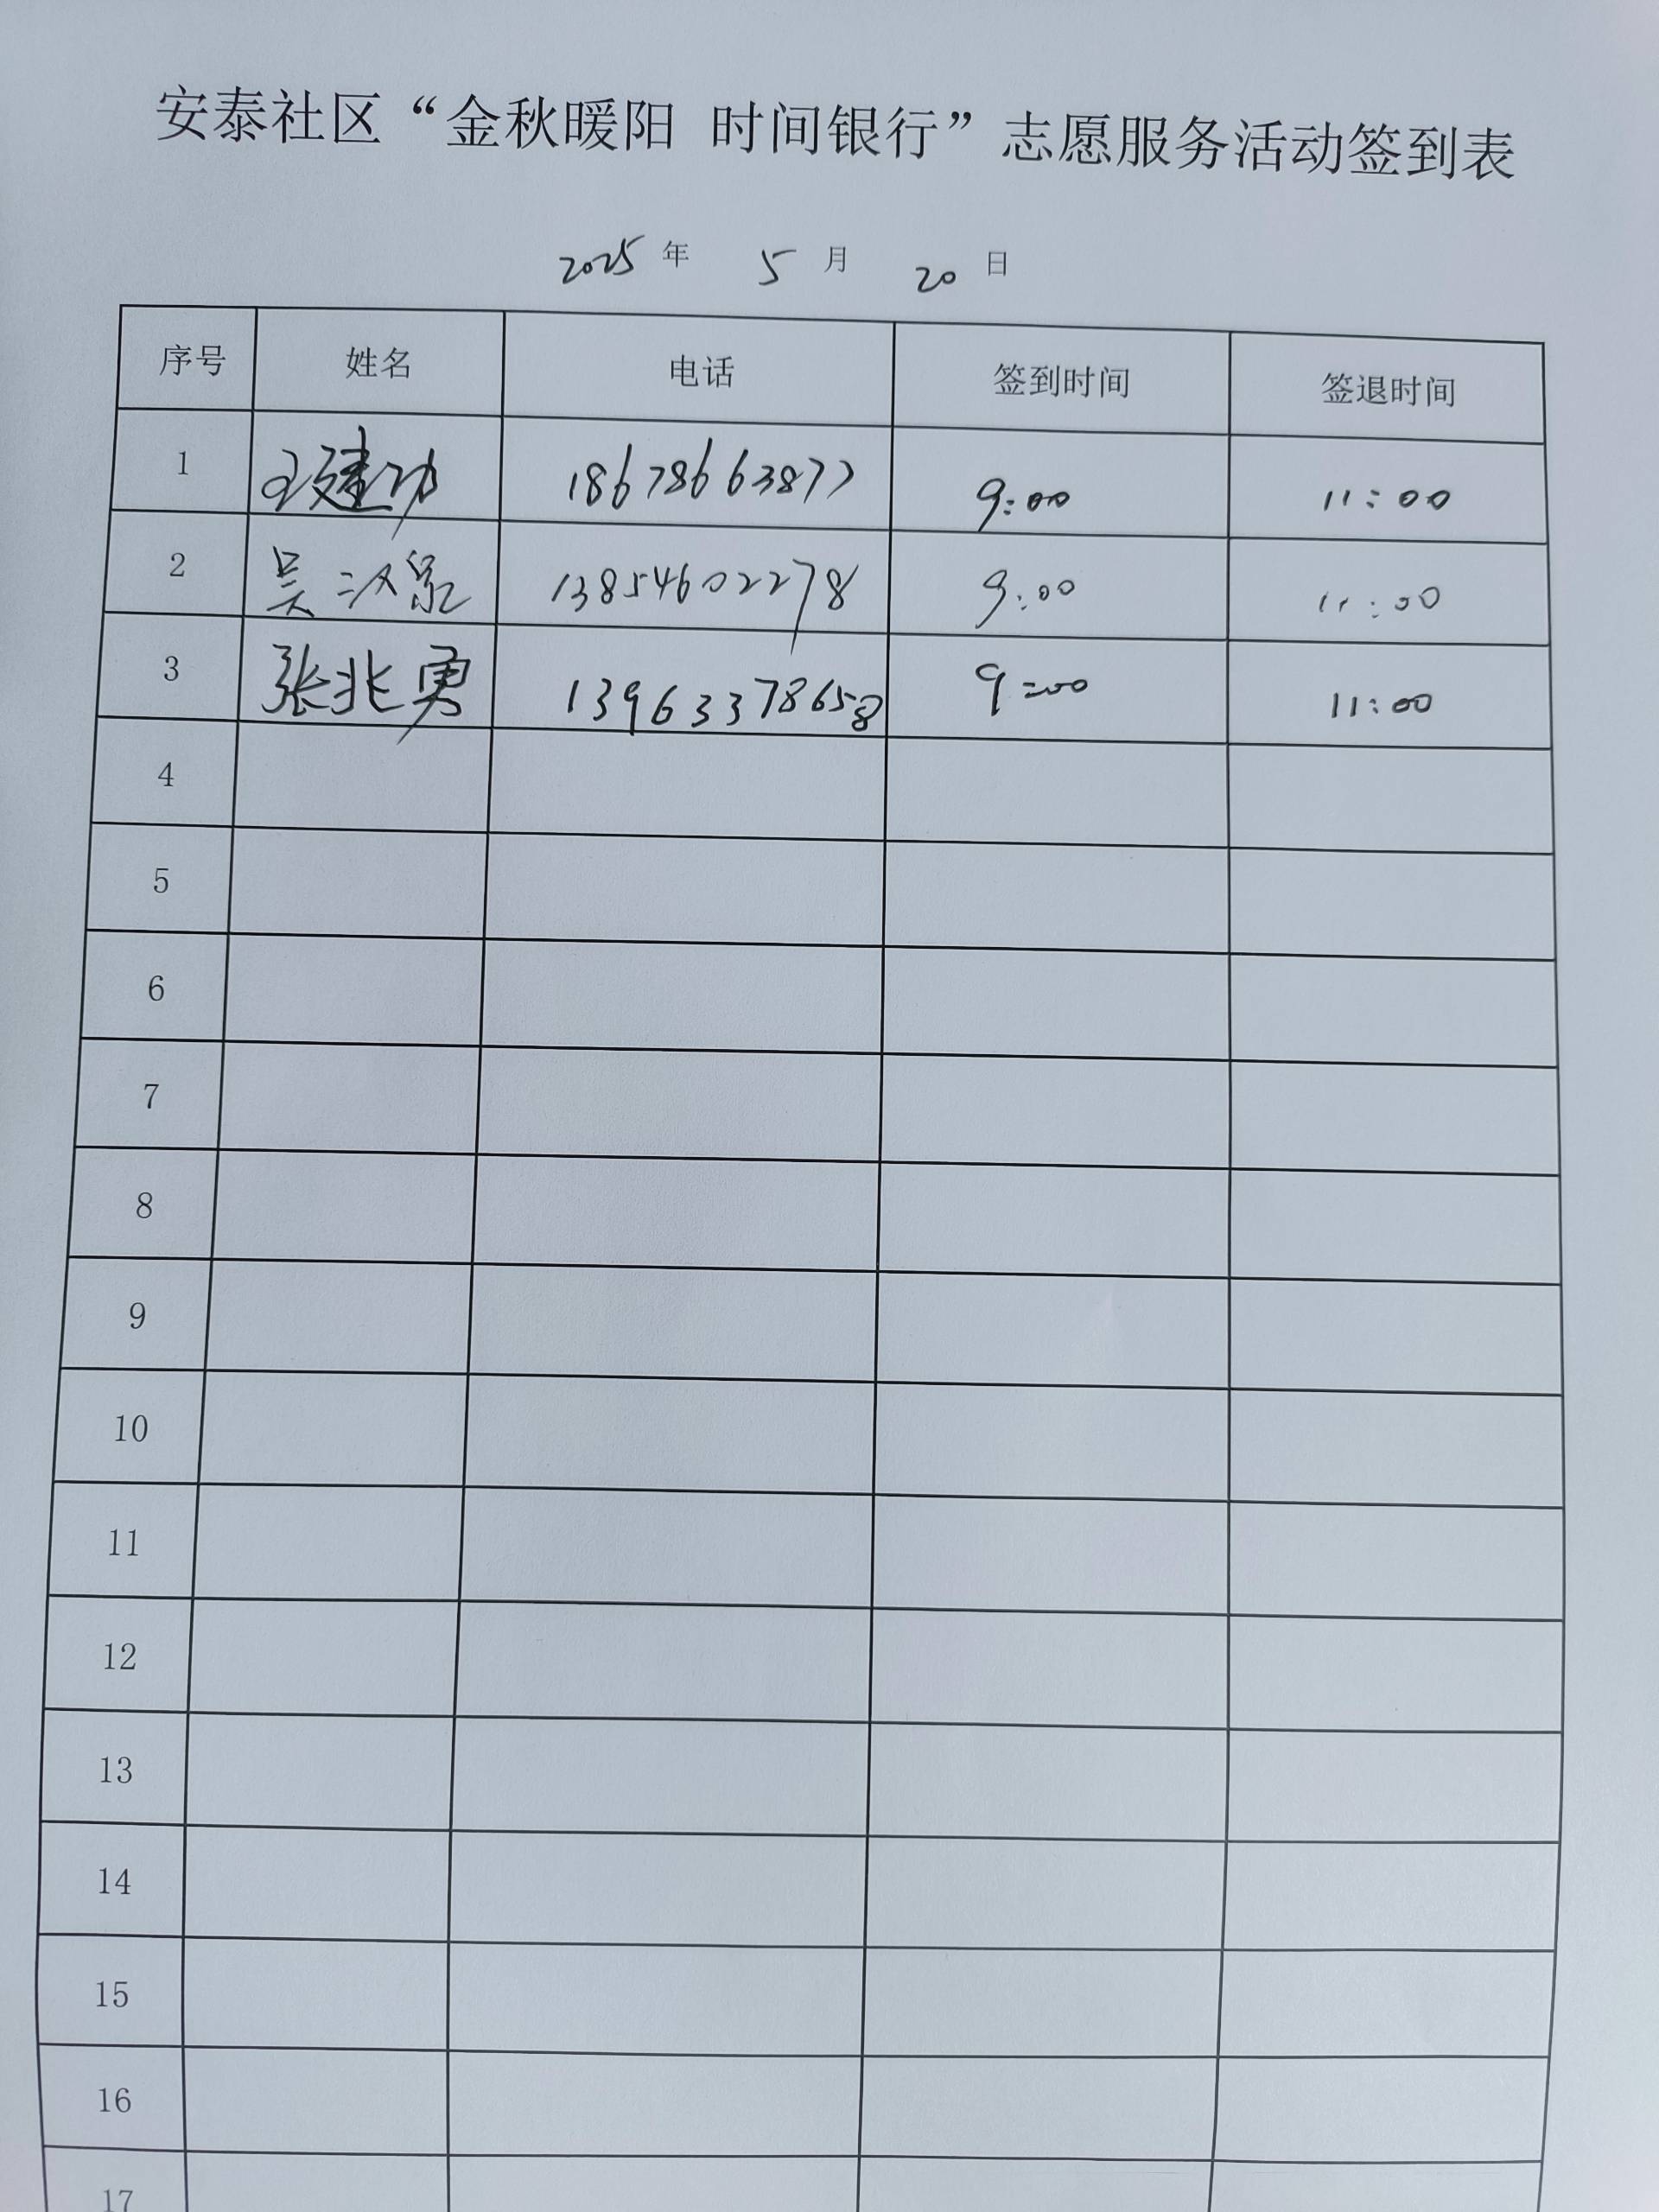 安泰社区“金秋暖阳 时间银行”志愿服务活动签到表
2025 年 5 月 20 日
序号 姓名 电话 签到时间 签退时间
1 王建功 18678663877 9:00 11:00
2 吴汉泉 13854602278 9:00 11:00
3 张兆勇 13963378658 9:00 11:00
4
5
6
7
8
9
10
11
12
13
14
15
16
17